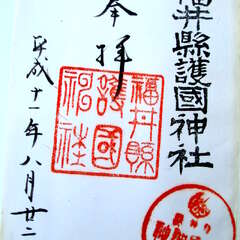 福井縣護國神社
奉拝
福井縣
護國
神社
平成十一年八月廿二